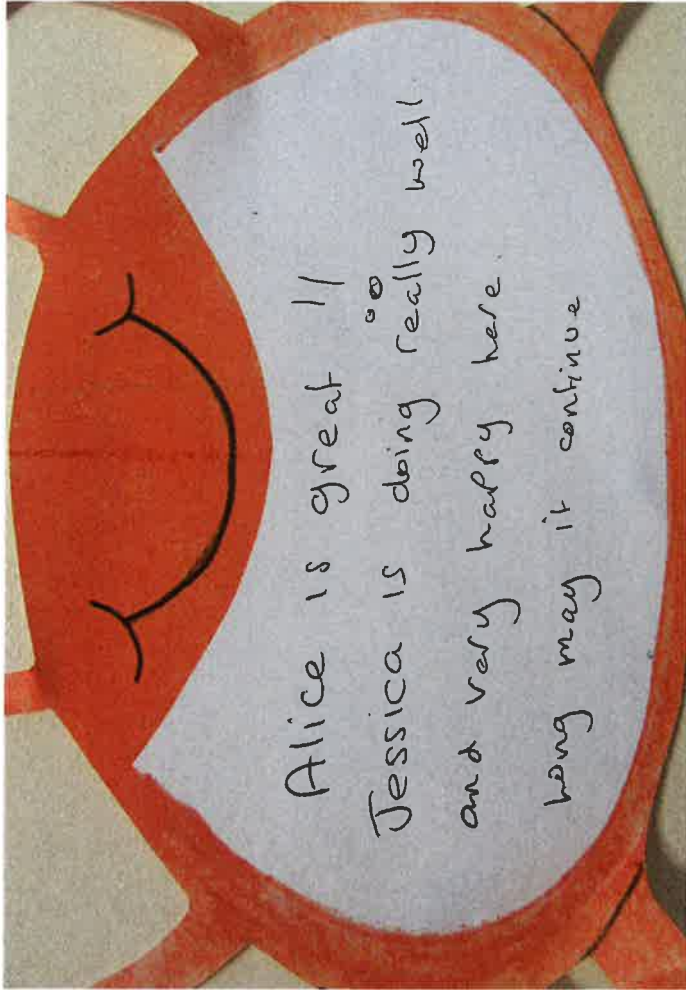 Alice is great !!
Jessica is doing really well
and very happy here
long may it continue